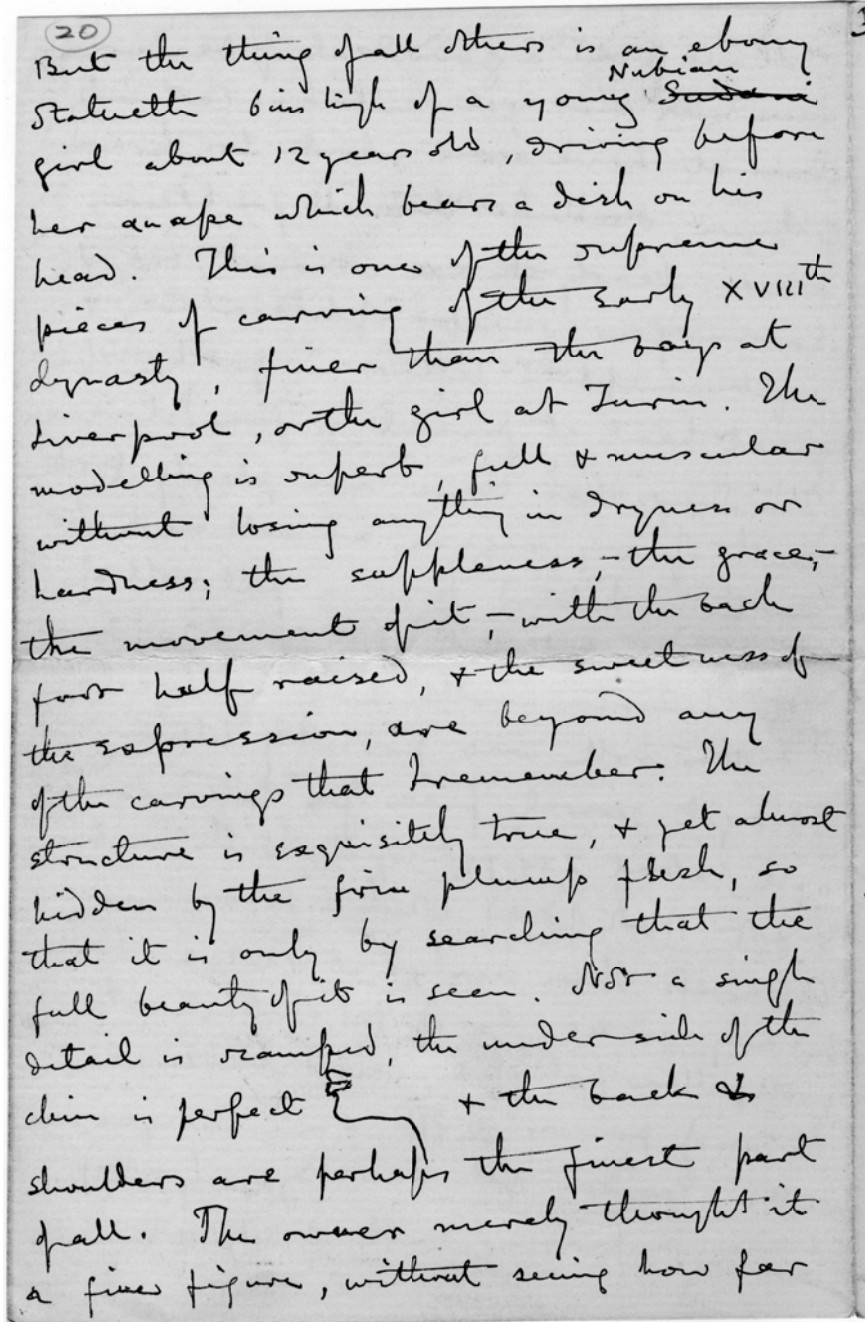 20
But the thing of all others is an ebony
Nubian
statuette 6 ins high of a young Sudani
girl about 12 years old, driving before
her an ape which bears a dish on his
head. This is one of the supreme
pieces of carving of the early XVIIIth
dynasty, finer than the boys at
Liverpool, or the girl at Turin. The
modelling is superb, full & muscular
without losing anything in dryness or
hardness; the suppleness, - the grace, -
the movement of it, - with the back
foot half raised, & the sweetness of
the expression, are beyond any
of the carvings that I remember. The
structure is exquisitely true, & yet almost
hidden by the firm plump flesh, so
that it is only by searching that the
full beauty of it is seen. Not a single
detail is scamped, the under side of the
chin is perfect & the back &
shoulders are perhaps the finest part
of all. The owner merely thought it
a fine figure, without seeing how far